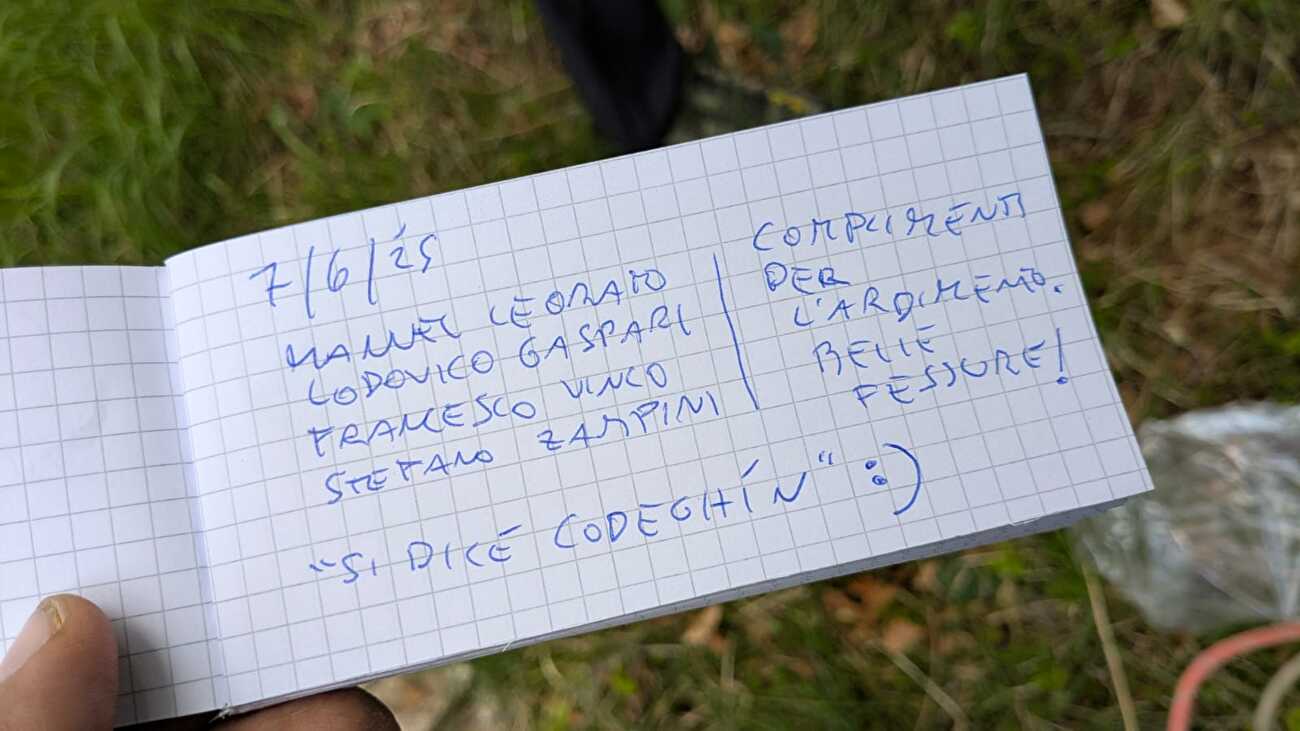 7/6/25
MANUEL LEORATO
LODOVICO GASPARI
FRANCESCO VINCO
STEFANO ZAMPINI
COMPLIMENTI
PER
L'ARDIMENTO.
BELLE
FESSURE!
"SI DICE CODEGHÍN" :)